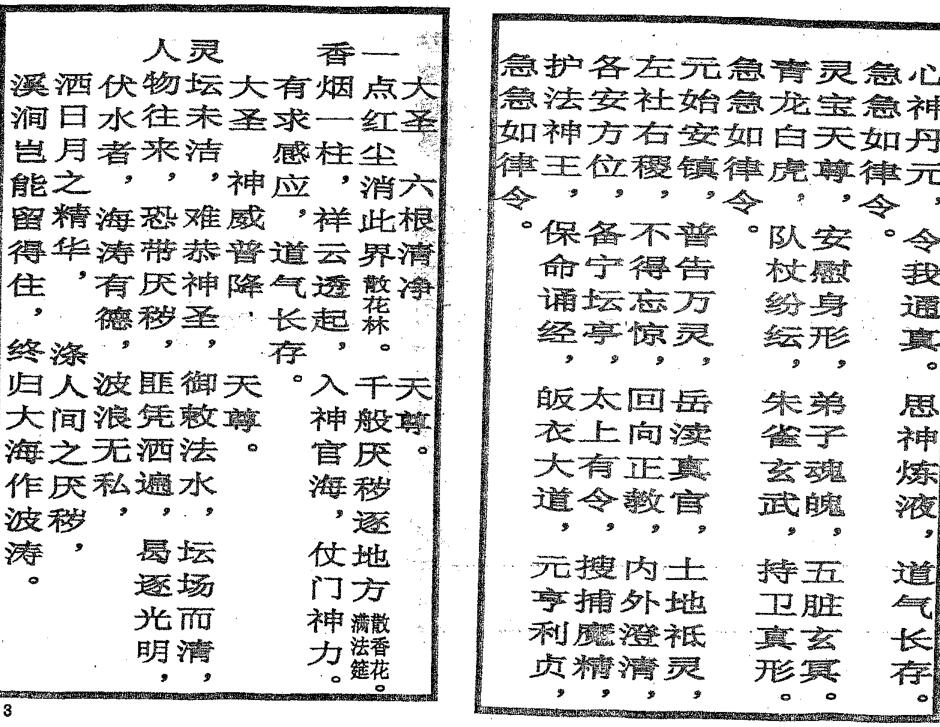 心神丹元，令我通真。思神炼液，道气长存。
急急如律令。
灵宝天尊，安慰身形，弟子魂魄，五脏玄冥。
青龙白虎，队杖纷纭，朱雀玄武，持卫真形。
急急如律令。
元始安镇，普告万灵，岳渎真官，土地祗灵，
左社右稷，不得忘惊，回向正教，内外澄清，
各安方位，备宁坛亭，太上有令，搜捕魔精，
护法神王，保命诵经，皈衣大道，元亨利贞，
急急如律令。
大圣 六根清净 天尊。
一点红尘消此界散花林。千般厌秽逐地方散香花。满法筵
香烟一柱，祥云透起，入神官海，仗门神力。
有求感应，道气长存。
大圣 神威普降 天尊。
灵坛未洁，难恭神圣，御敕法水，坛场而清，
人物往来，恐带厌秽，匪凭洒遍，曷逐光明，
伏水者，海涛有德，波浪无私，
洒日月之精华，涤人间之厌秽，
溪涧岂能留得住，终归大海作波涛。
3